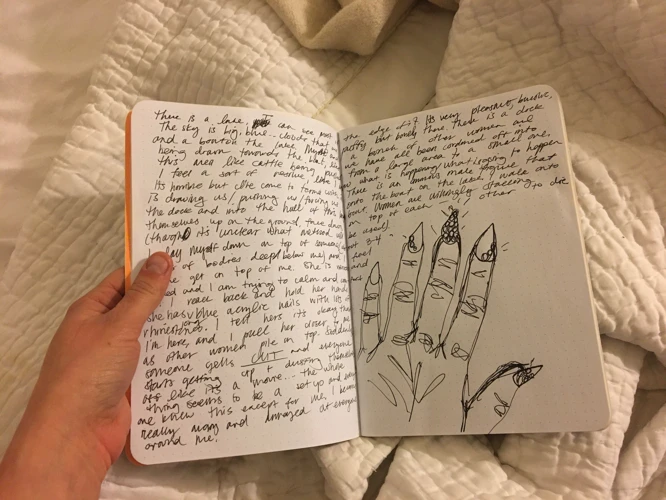 there is a lake, I can see most
The sky is big, blue... clouds that
and a boat on the lake. Myself and
being drawn towards the boat, like
this area like cattle being
I feel a sort of passive, like I
Its horrible but I've come to terms with
is drawing us / pushing us / forcing us
the dock and into the hull of this
themselves up on the ground, three deep
(though it's unclear what
I lay myself down on top of someone (about 3-4
of bodies deep) below me) and feel
one get on top of me. She is and
and I am trying to calm and
I reach back and hold her hand
she has long blue acrylic nails with lots of
rhinestones. I tell hers it's okay that
I'm here, and I pull her closer to me
as other women pile on top. Suddenly
someone yells CUT and everyone
starts getting up + dusting themselves
off like it's a movie... the whole
thing seems to be a set up and every
one knew this except for me. I become
really angry and enraged at everyone
around me!
the edge of it. Its very pleasant, bucolic,
pretty but lonely there. There is a dock
a bunch of other women and
we have all been corralled off into
from a large area to a small one,
know what is happening, what is going to happen
There is an ominous male figure that
onto the boat on the lake, I walk onto
boat. Women are willingly stacking
on top of each other to die
be used).